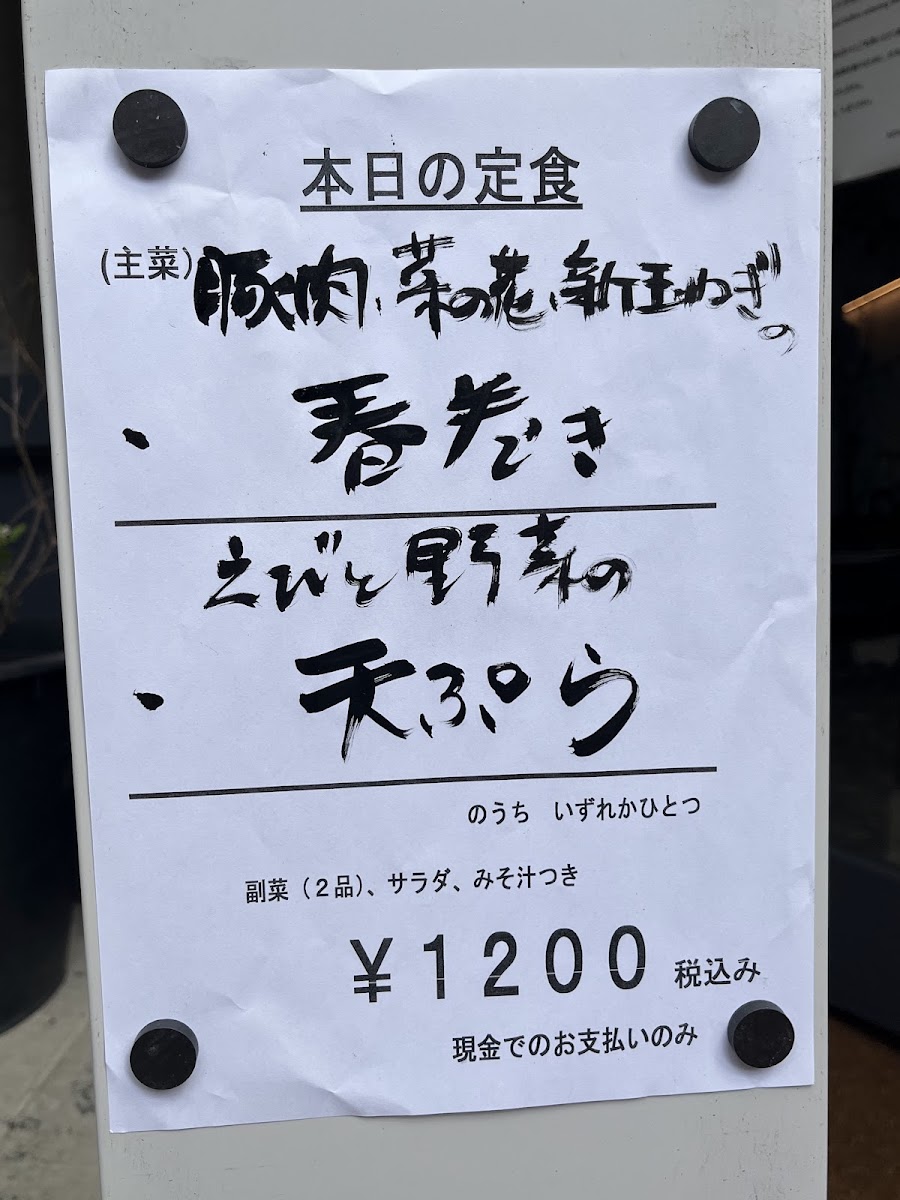 本日の定食
(主菜)豚肉、菜の花、新玉ねぎの
・春巻き
えびと野菜の
・天ぷら
のうち　いずれかひとつ
副菜（２品）、サラダ、みそ汁つき
￥１２００ 税込み
現金でのお支払いのみ